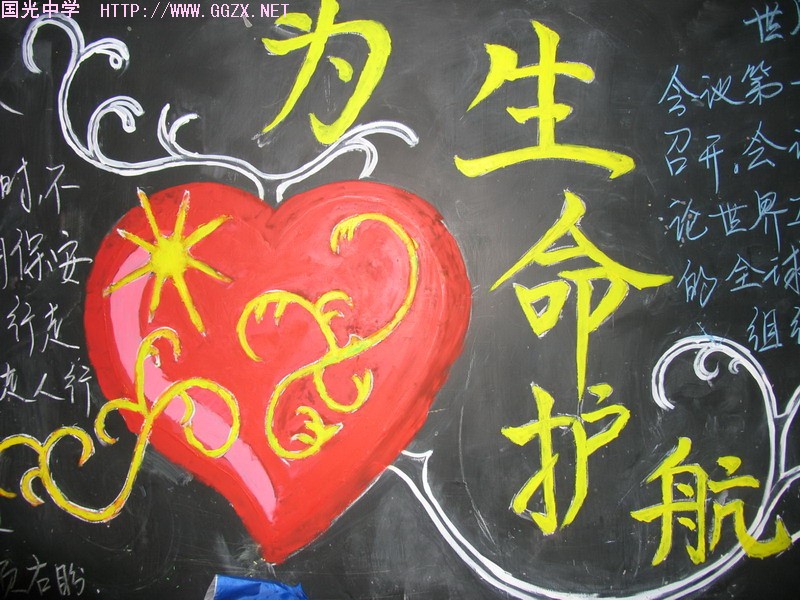 国光中学 HTTP://WWW.GGZX.NET
为生命护航
时,不
保安
行走
人行
左右盼.
世
会议第一
召开,会
论世界
的全球
组